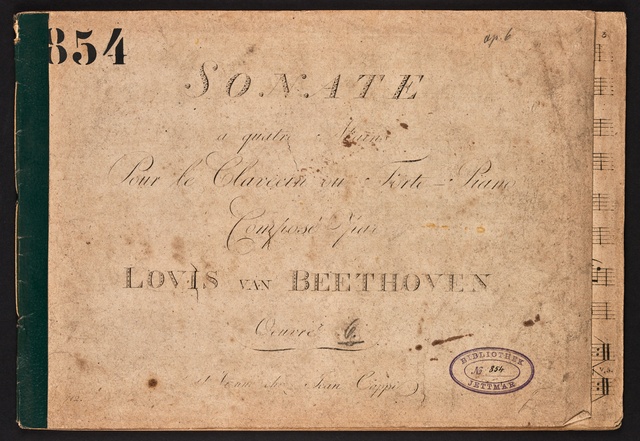 854
op. 6
SONATE
a quatre Mains
Pour le Clavecin ou Forte-Piano
Composé par
LOVIS VAN BEETHOVEN
Oeuvre 6.
Jean Cappi
BIBLIOTHEK
№ 854
JETTMAR